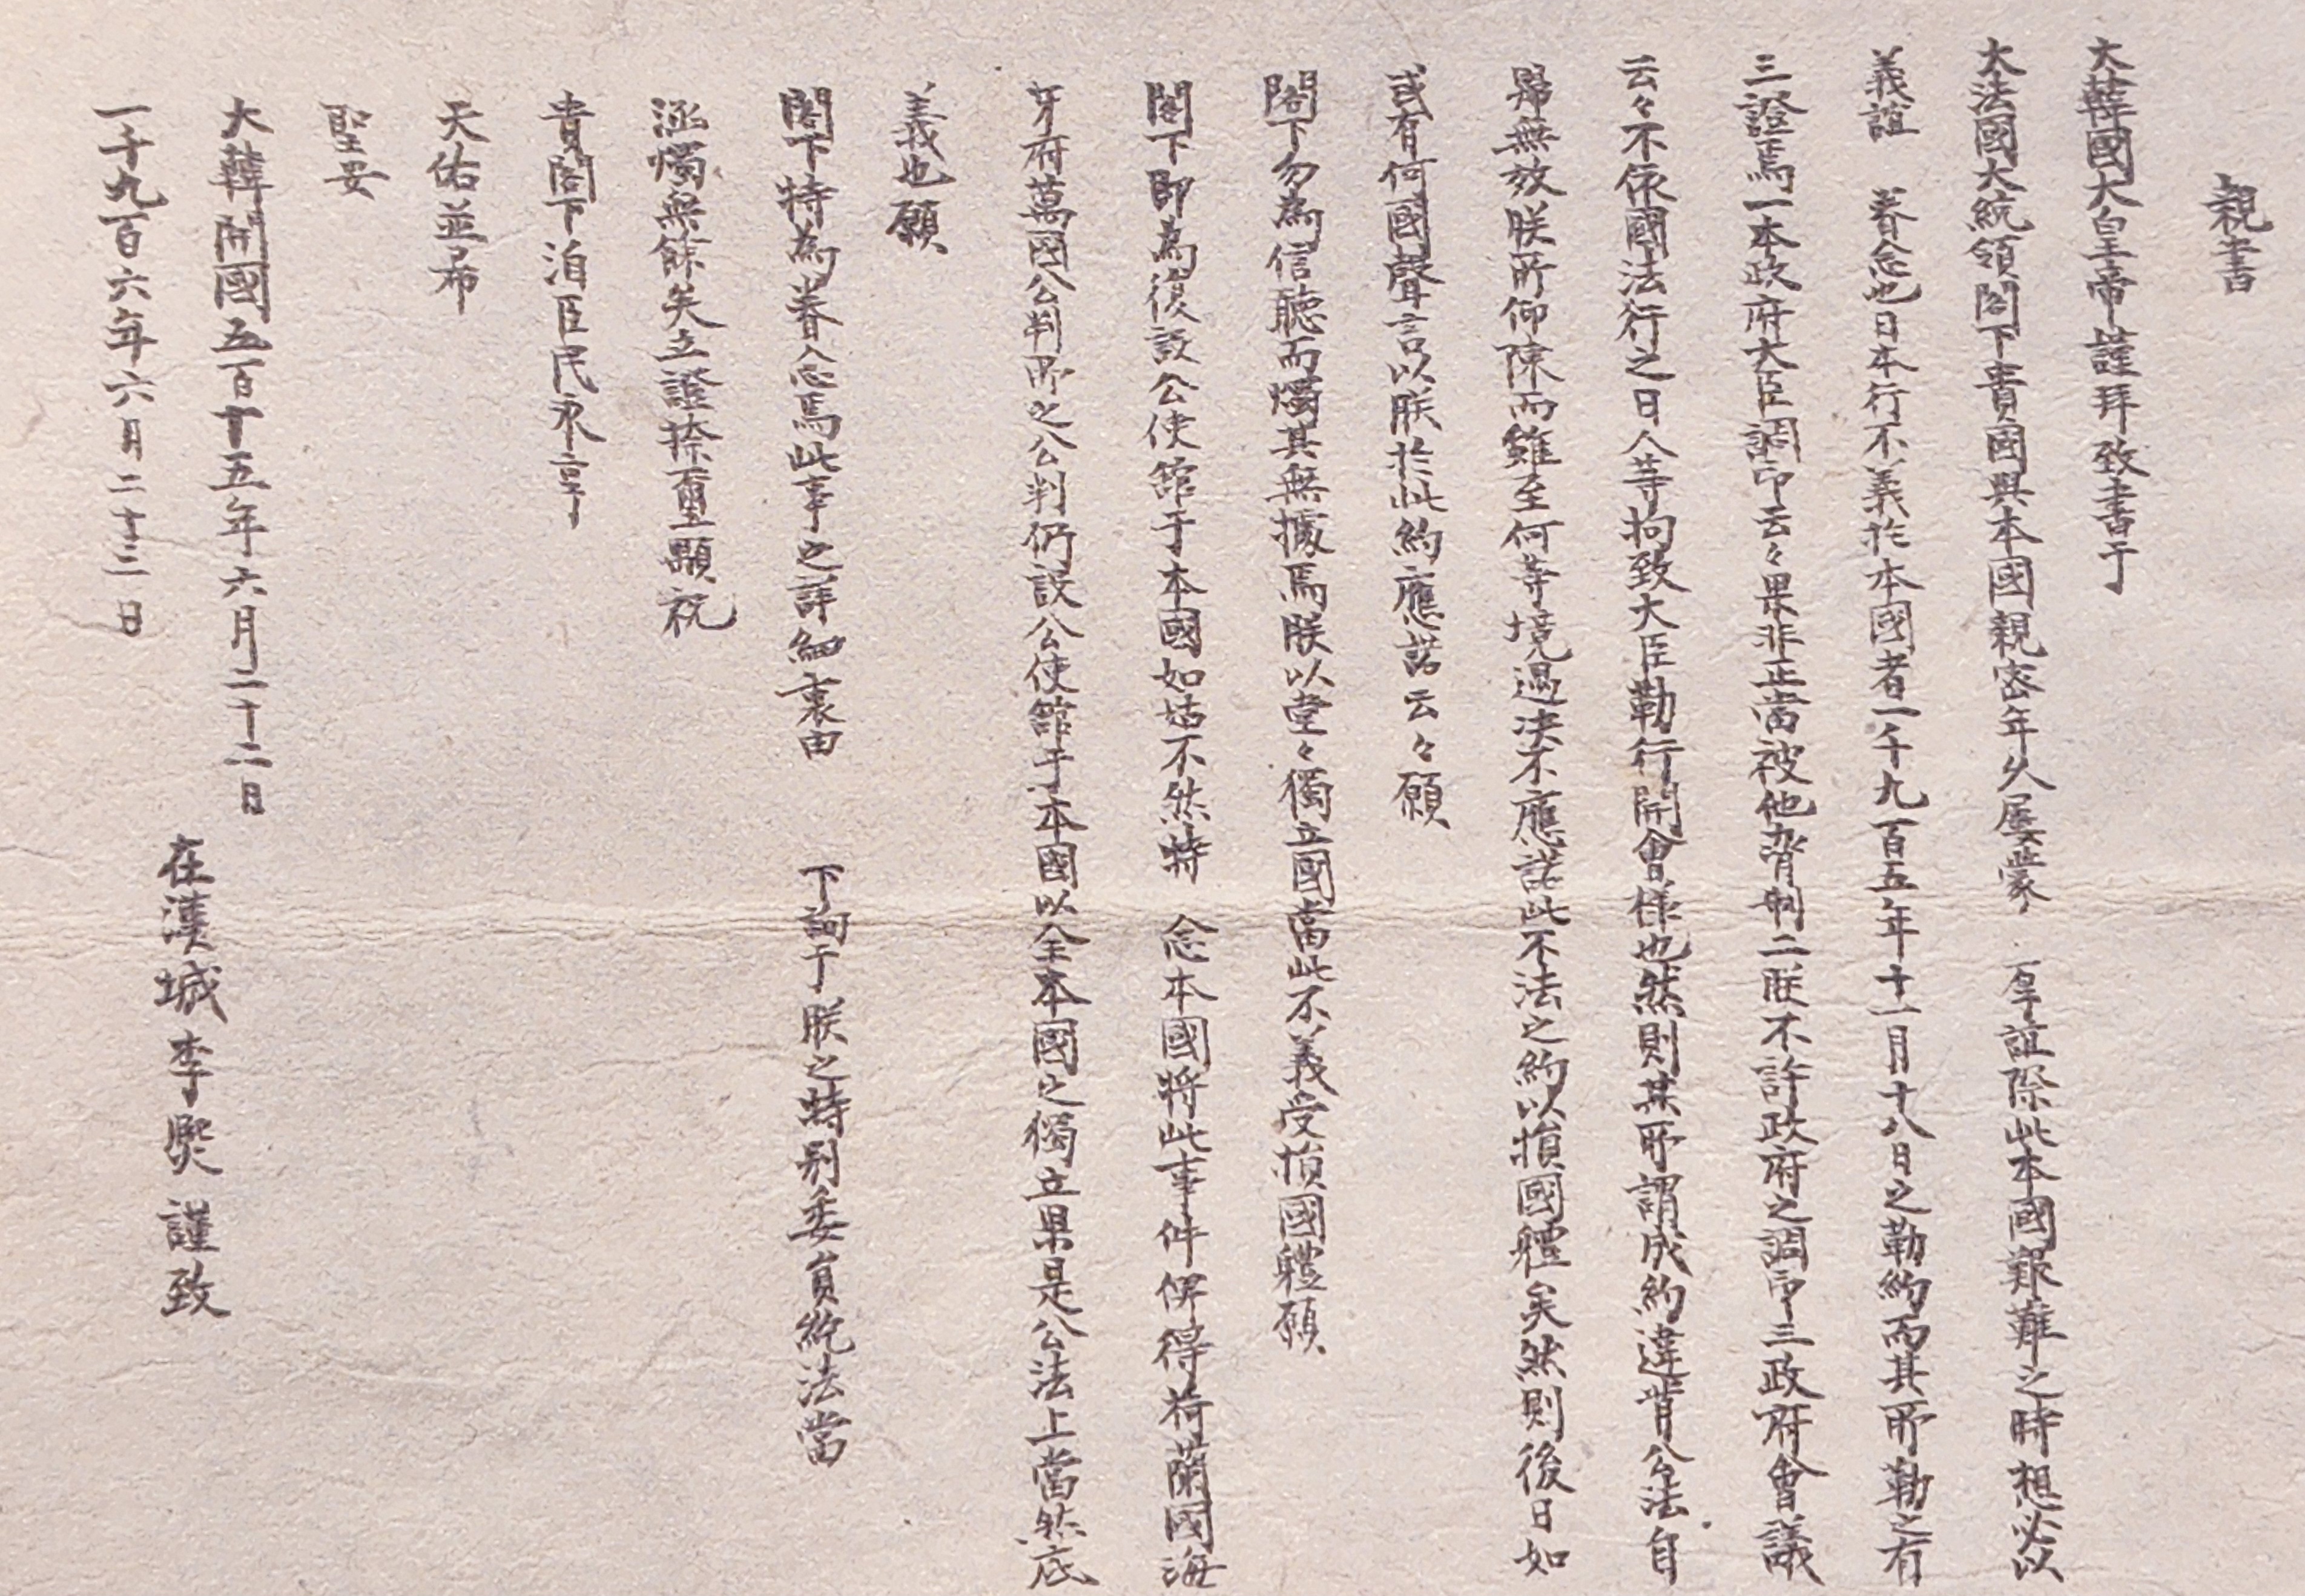 親書
大韓國大皇帝謹拜致書于
大法國大統領閣下貴國與本國親密年久屢蒙 厚誼際此本國艱難之時想必以
義誼 眷念也日本行不義於本國者一千九百五年十一月十八日之勒約而其所勒之有
三證焉一本政府大臣調印云々果非正當被他脅制二朕不許政府之調印三政府會議
云々不依國法行之日人等拘致大臣勒行開會樣也然則其所謂成約違背公法自
歸無效朕所仰陳而雖至何等境遇決不應諾此不法之約以損國軆矣然則後日如
或有何國聲言以朕於此約應諾云々願
閣下勿為信聽而燭其無據焉朕以堂々獨立國當此不義受損國軆願
閣下即為復設公使館于本國如姑不然特 念本國將此事件俾得荷蘭國海
牙府萬國公判所之公判仍設公使館于本國以全本國之獨立果是公法上當然底
義也願
閣下特為眷念焉此事之詳細裏由 下詢于朕之特別委員統法當
洞燭無餘矣立證捺璽顒祝
貴閣下洎臣民永享
天佑並布
聖安
大韓開國五百十五年六月二十二日
一千九百六年六月二十三日
在漢城李㷩謹致